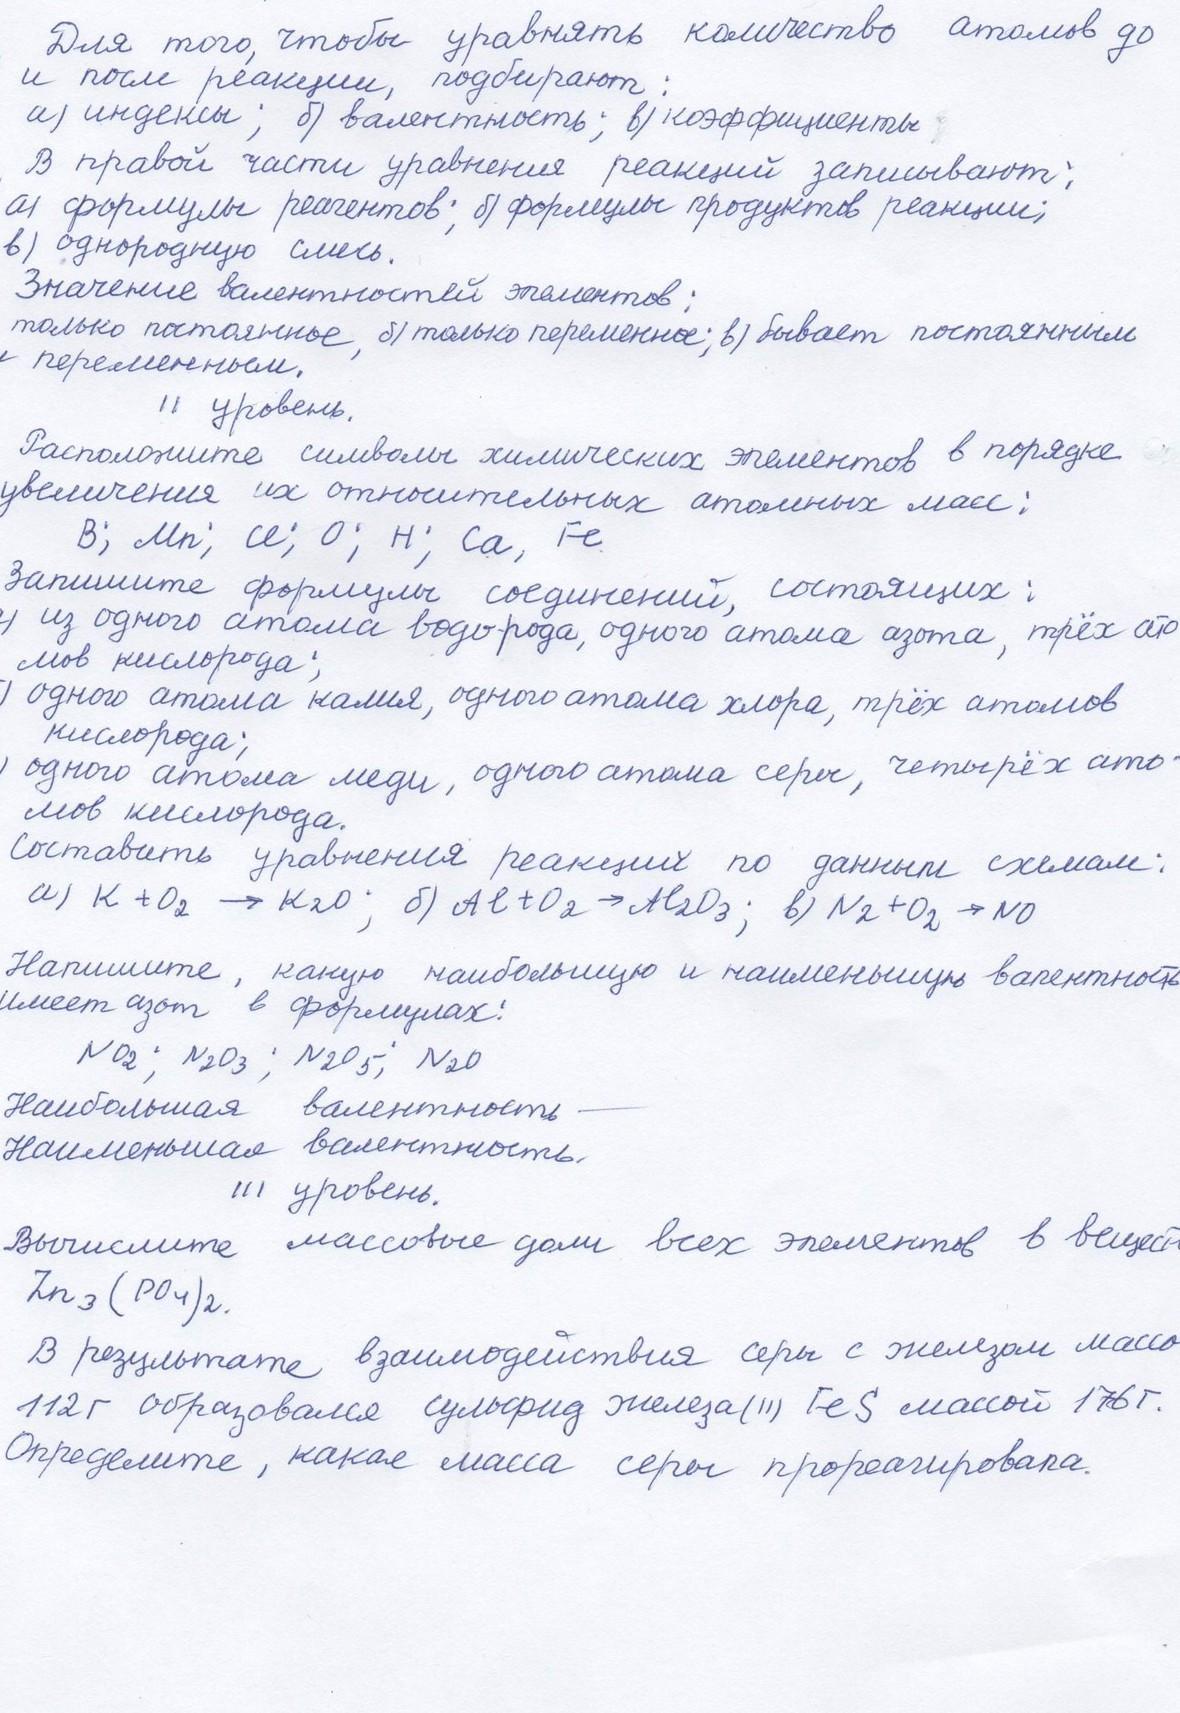 Для того, чтобы уравнять количество атомов до
и после реакции, подбирают:
а) индексы; б) валентность; в) коэффициенты
В правой части уравнения реакций записывают:
а) формулы реагентов; б) формулы продуктов реакции;
в) однородную смесь.
Значение валентностей элементов:
только постоянное, б) только переменное; в) бывает постоянным
и переменным.
II уровень.
Расположите символы химических элементов в порядке
увеличения их относительных атомных масс:
B; Mn; Cl; O; H; Ca, Fe
Запишите формулы соединений, состоящих:
а) из одного атома водорода, одного атома азота, трёх ато
мов кислорода;
б) одного атома калия, одного атома хлора, трёх атомов
кислорода;
) одного атома меди, одного атома серы, четырёх ато-
мов кислорода.
Составить уравнения реакций по данным схемам:
а) K + O2 → K2O; б) Al + O2 → Al2O3; в) N2 + O2 → NO
Напишите, какую наибольшую и наименьшую валентность
имеет азот в формулах:
NO2; N2O3; N2O5; N2O
Наибольшая валентность —
Наименьшая валентность.
III уровень.
Вычислите массовые доли всех элементов в вещест
Zn3(PO4)2.
В результате взаимодействия серы с железом массо
112г образовался сульфид железа(II) FeS массой 176г.
Определите, какая масса серы прореагировала.